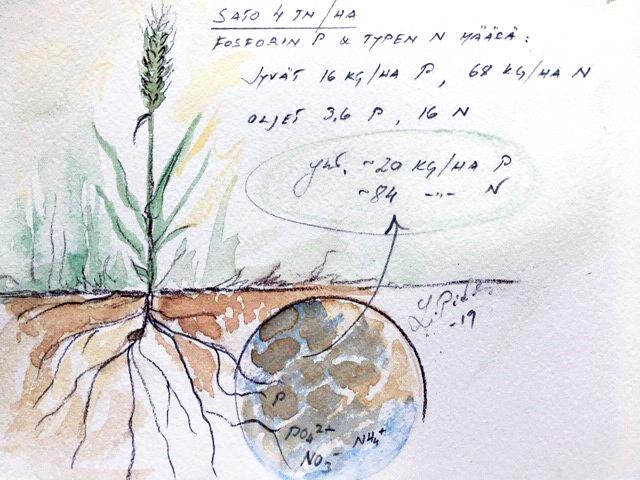 SATO 4 TN/HA
FOSFORIN P & TYPEN N MÄÄRÄ:
JYVÄT 16 KG/HA P, 68 KG/HA N
OLJET 3,6 P, 16 N
YHT. ~20 KG/HA P
~84 -"- N
-19
P
PO₄²⁻
NH₄⁺
NO₃⁻